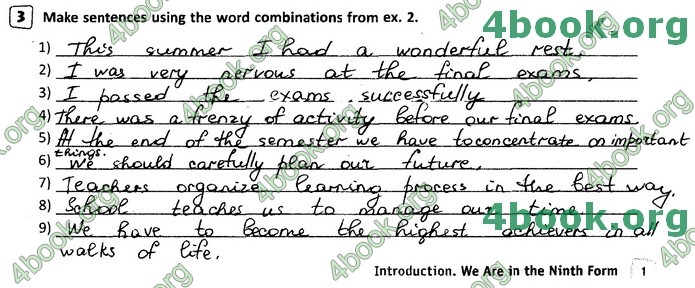 3 Make sentences using the word combinations from ex. 2.
4book.org
1) This summer I had a wonderful rest.
2) I was very nervous at the final exams.
3) I passed the exams successfully
4) There was a frenzy of activity before our final exams.
5) At the end of the semester we have to concentrate on important
things.
6) We should carefully plan our future.
7) Teachers organize learning process in the best way.
8) School teaches us to manage our time.
4book.org
9) We have to become the highest achievers in all
walks of life.
Introduction. We Are in the Ninth Form 1